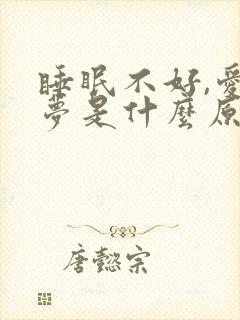 睡眠不好,愛
夢是什麼原
唐懿宗